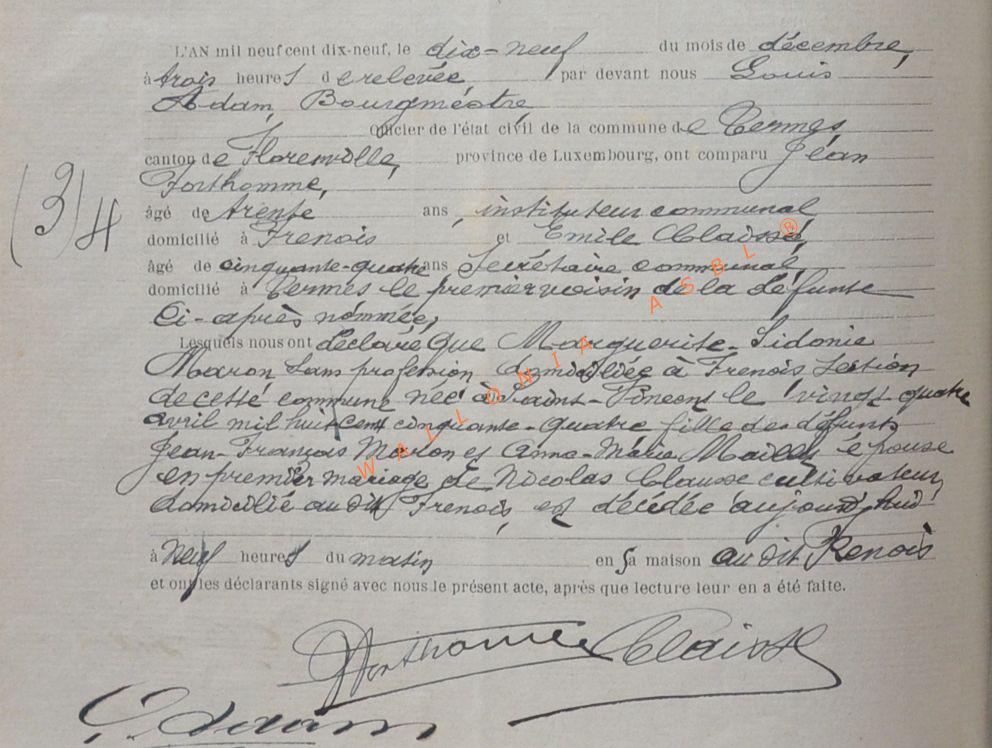 L'AN mil neuf cent dix-neuf, le dix-neuf du mois de décembre,
à trois heures de relevée par devant nous Louis
Adam, Bourgmestre
Officier de l'état civil de la commune de Termes,
canton de Florenville, province de Luxembourg, ont comparu Jean
Forthomme,
âgé de trente ans, instituteur communal
domicilié à Frenois et Emile Claisse,
âgé de cinquante-quatre ans Secrétaire communal,
domicilié à Termes le premier voisin de la défunte
Ci-après nommée,
Lesquels nous ont déclaré Que Marguerite-Sidonie
Maron Sans profession domiciliée à Frenois Section
de cette commune née à Saint- le vingt quatre
avril mil huit cent cinquante-quatre fille des défunts
Jean-François Maron et Anna-Marie épouse
en premier mariage de Nicolas Clausse cultivateur,
domicilié au dit Frenois, est décédée aujourd'hui
à Neuf heures du matin en Sa maison au dit Frenois
et ont les déclarants signé avec nous le présent acte, après que lecture leur en a été faite.
(3) 4
Forthomme Claisse
L. Adam
WALLONIA ASBL ®